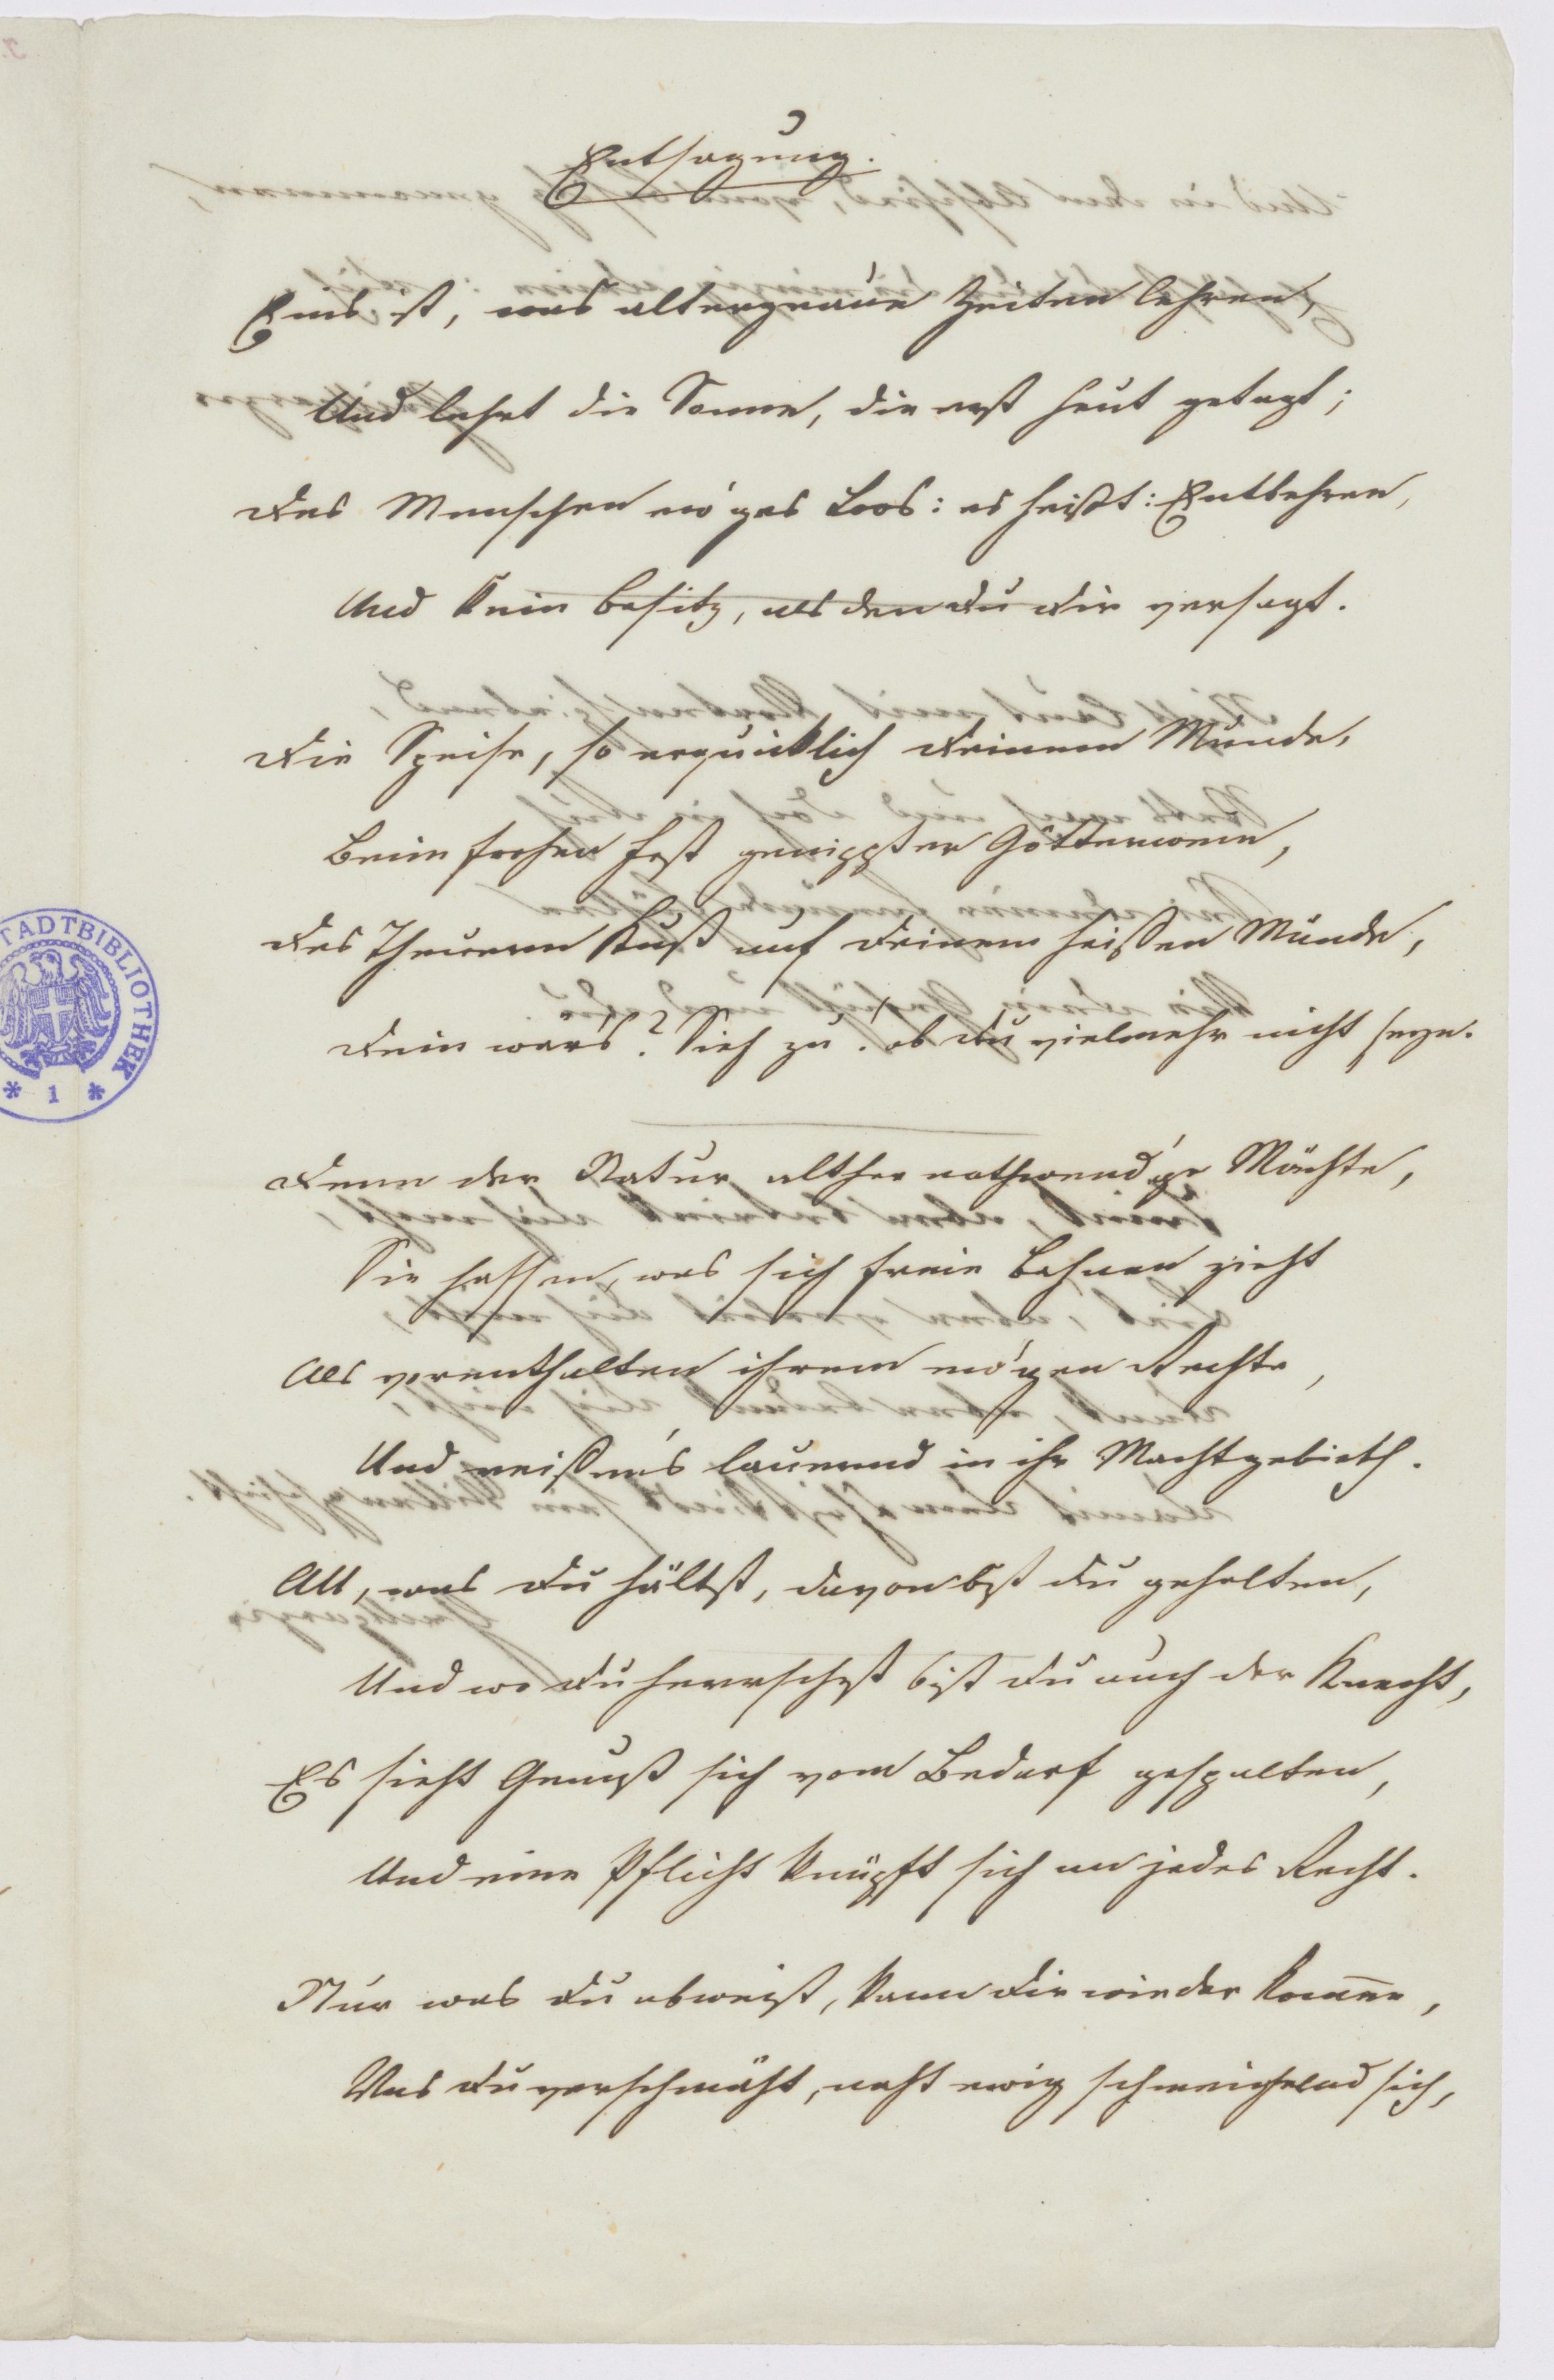 Entsagung.
Eins ist, was altergraue Zeiten lehren,
Und lehrt die Sonne, die erst heut getagt;
Des Menschen ew'ges Loos: es heißt: Entbehren,
Und kein Besitz, als den du dir versagt.
Die Speise, so erquicklich deinem Munde,
Beim frohen Fest genippter Götterwein,
Des Theuern Kuß auf deinem heißen Munde,
Dein wär's? Sieh zu! ob du vielmehr nicht seyn.
Denn der Natur alther nothwend'ge Mächte,
Sie hassen, was sich freie Bahnen zieht
Als vorenthalten ihrem ew'gen Rechte,
Und reißen's lauernd in ihr Machtgebieth.
All, was du hältst, davon bist du gehalten,
Und wo du herrschest bist du auch der Knecht,
Es sieht Genuß sich vom Bedarf gespalten,
Und eine Pflicht knüpft sich an jedes Recht.
Nur was du abweist, kann dir wieder kom̅en,
Was du verschmäht, naht ewig schmeichelnd sich,
STADTBIBLIOTHEK
* 1 *